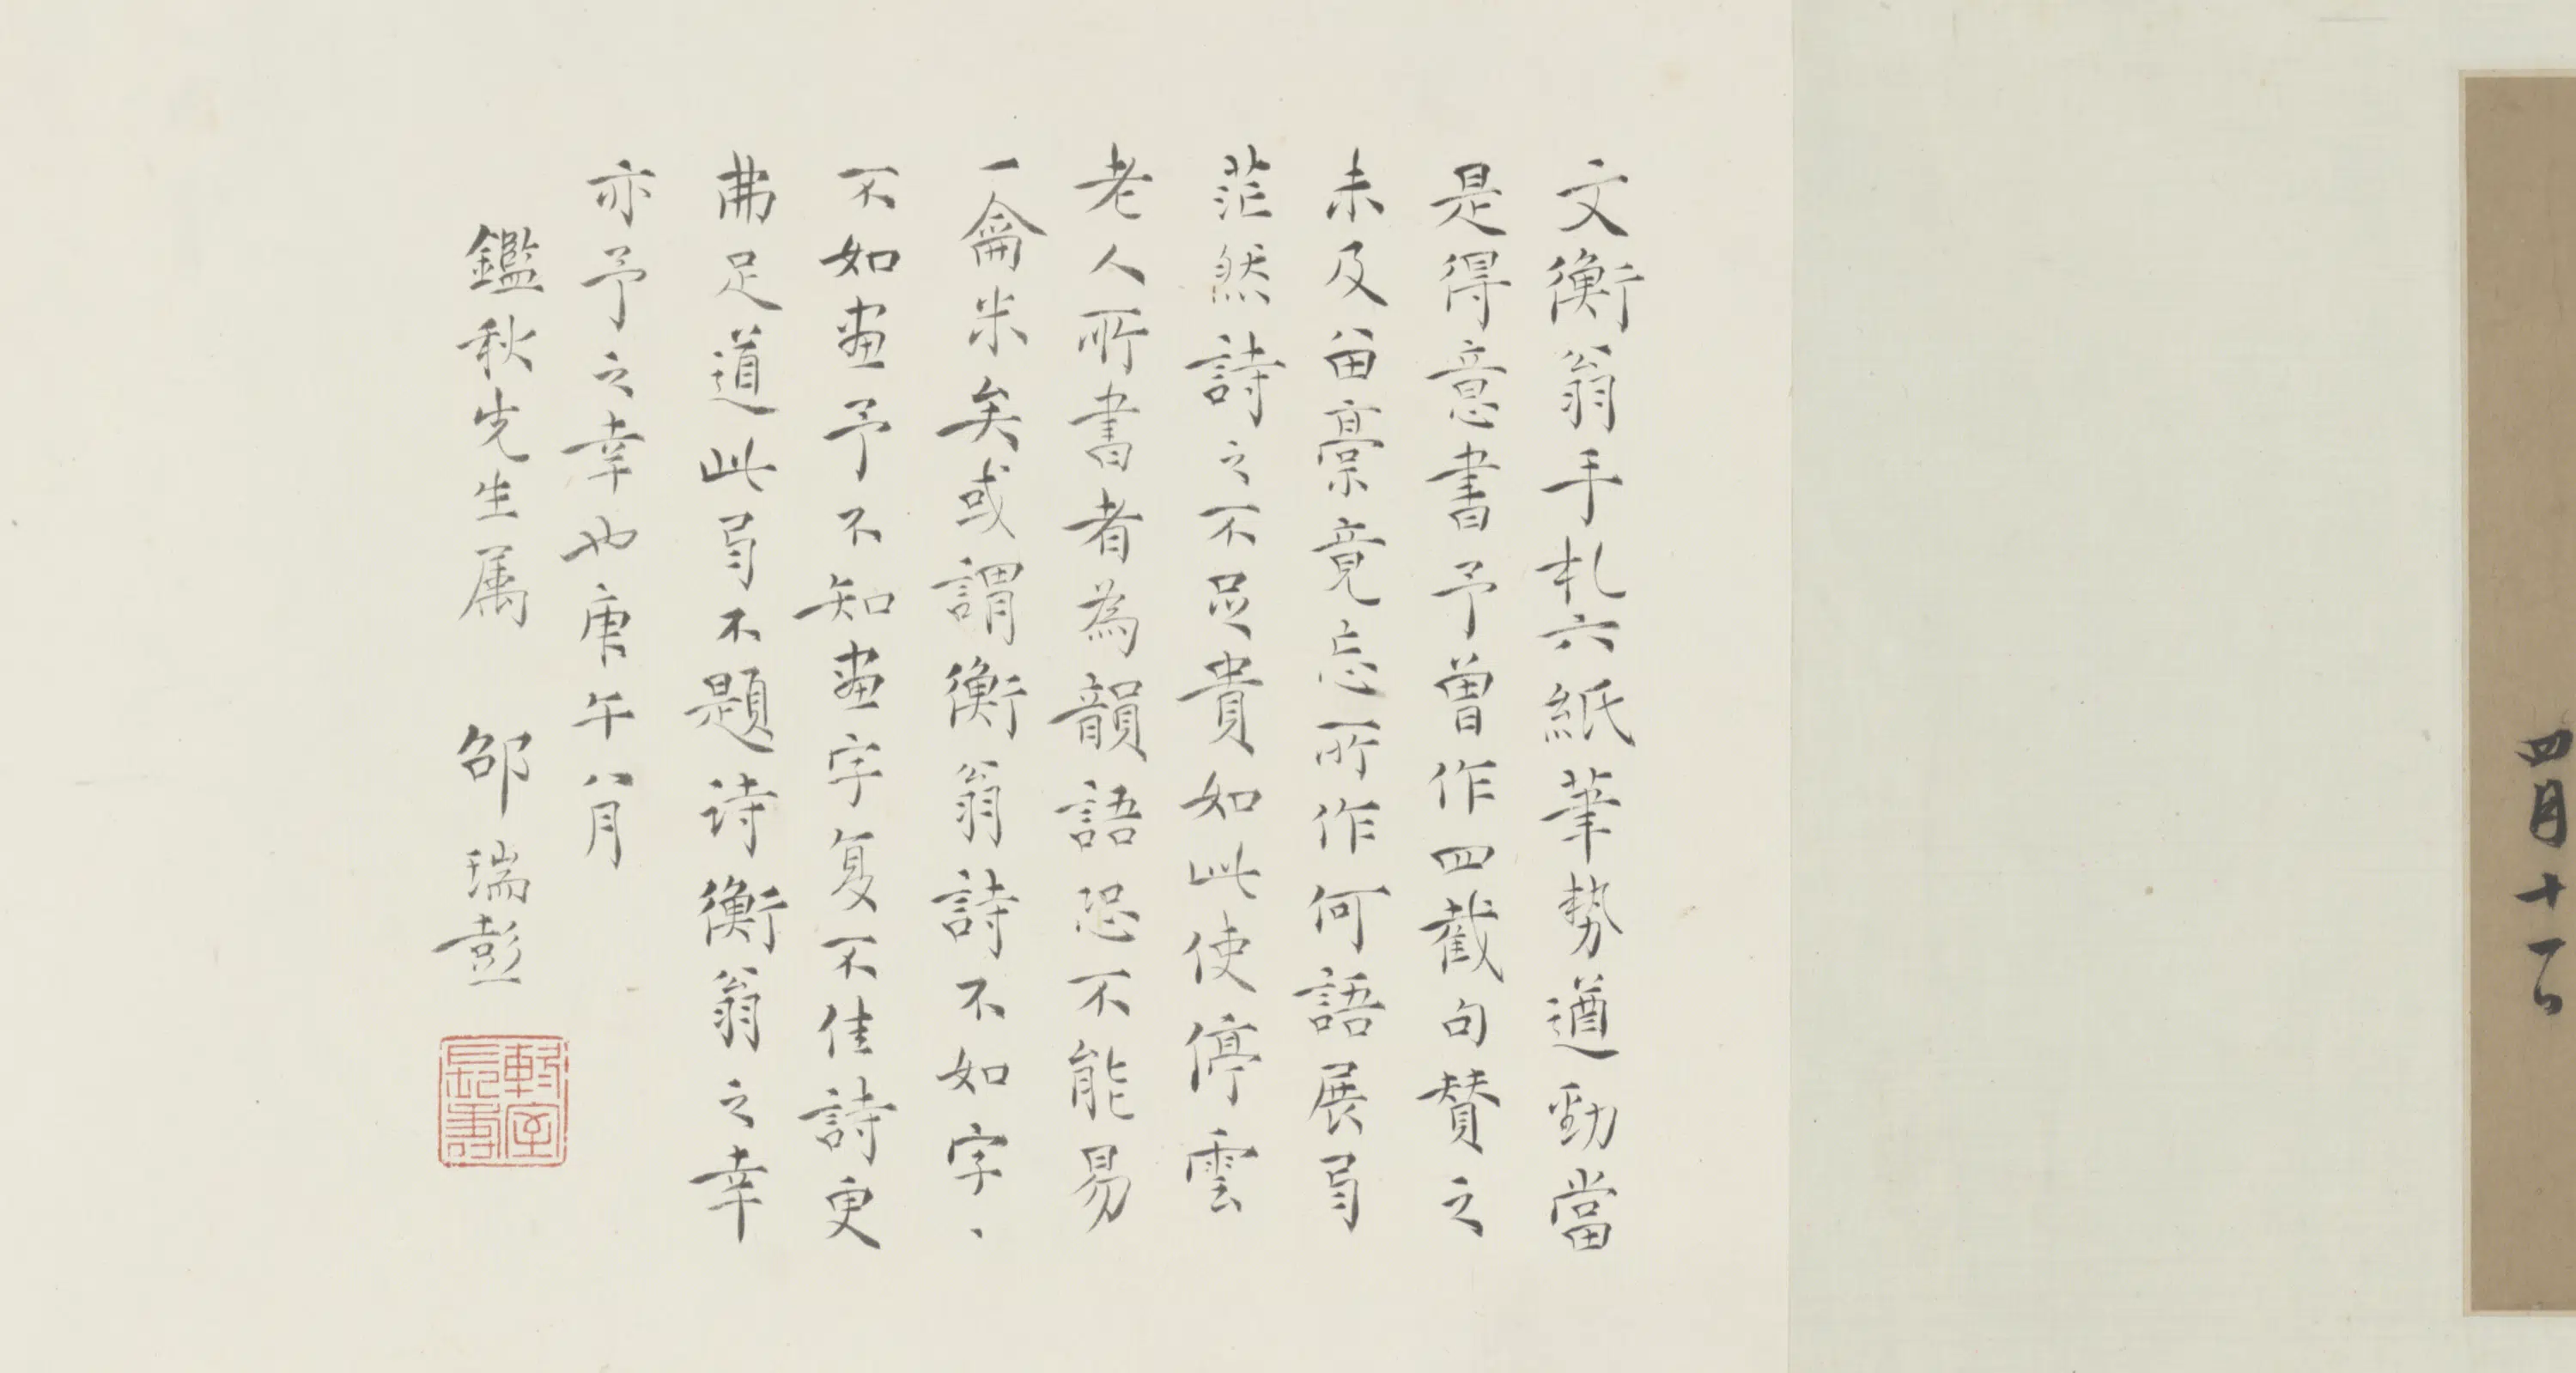 四月十一日
文衡翁手札六紙筆勢遒勁當
是得意書予曾作四截句贊之
未及畱稾竟忘所作何語展卷
茫然詩之不足貴如此使停雲
老人所書者為韻語恐不能易
一龠米矣或謂衡翁詩不如字、
不如畫予不知畫字复不佳詩更
弗足道此卷不題诗衡翁之幸
亦予之幸也庚午八月
鑑秋先生属 邵瑞彭